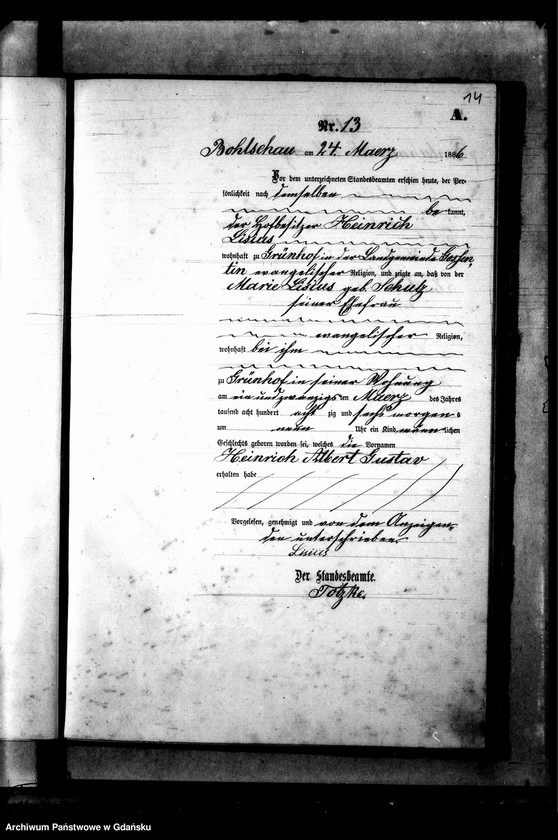 14
A.
Nr. 13
Bohlschau am 24. Maerz 1886
Vor dem unterzeichneten Standesbeamten erschien heute, der Per-
sönlichkeit nach demselben
bekannt,
der Hofbesitzer Heinrich
Lisius
wohnhaft zu Grünhof in der Landgemeinde Gossen-
tin evangelischer Religion, und zeigte an, daß von der
Marie Lisius geb. Schulz
seiner Ehefrau
evangelischer Religion,
wohnhaft bei ihm
zu Grünhof in seiner Wohnung
am ein und zwanzigsten Maerz des Jahres
tausend acht hundert achtzig und sechs morgens
um neun Uhr ein Kind männlichen
Geschlechts geboren worden sei, welches die Vornamen
Heinrich Albert Gustav
erhalten habe
Vorgelesen, genehmigt und von dem Anzeigen-
den unterschrieben
Lisius
Der Standesbeamte.
Totzke
Archiwum Państwowe w Gdańsku